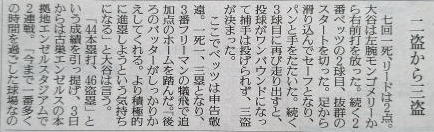 二盗から三盗
七回一死、リードは2点。
大谷は左腕モンゴメリーか
ら右前打を放った。続く2
番ベッツの2球目、抜群の
スタートを切った。足から
滑り込んでセーフとなり、
パンと手をたたいた。続く
3球目に再び走り出すと、
投球がワンバウンドになっ
て捕手は投げられず、二盗
が決まった。
ここでベッツは申告敬
遠。一死一、三塁となり、
3番フリーマンの犠飛で追
加点のホームを踏んだ。「後
ろのバッターがしっかりか
えしてくれる。より積極的
に進塁しようという気持ち
になる」と大谷は言う。
「44本塁打、46盗塁」と
いう成績を引っ提げ、3日
からは古巣エンゼルスの本
拠地エンゼルスタジアムで
2連戦。「今まで一番多く
の時間を過ごした球場なの